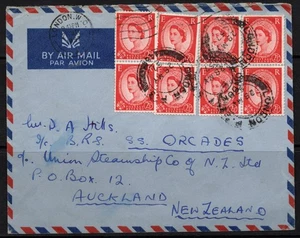 LONDON. W.C.
BY AIR MAIL
PAR AVION
D. A
S.R.S. SS. ORCADES
c/o Union Steamship Co of N.Z. Ltd
P.O. Box. 12.
AUCKLAND
NEW ZEALAND